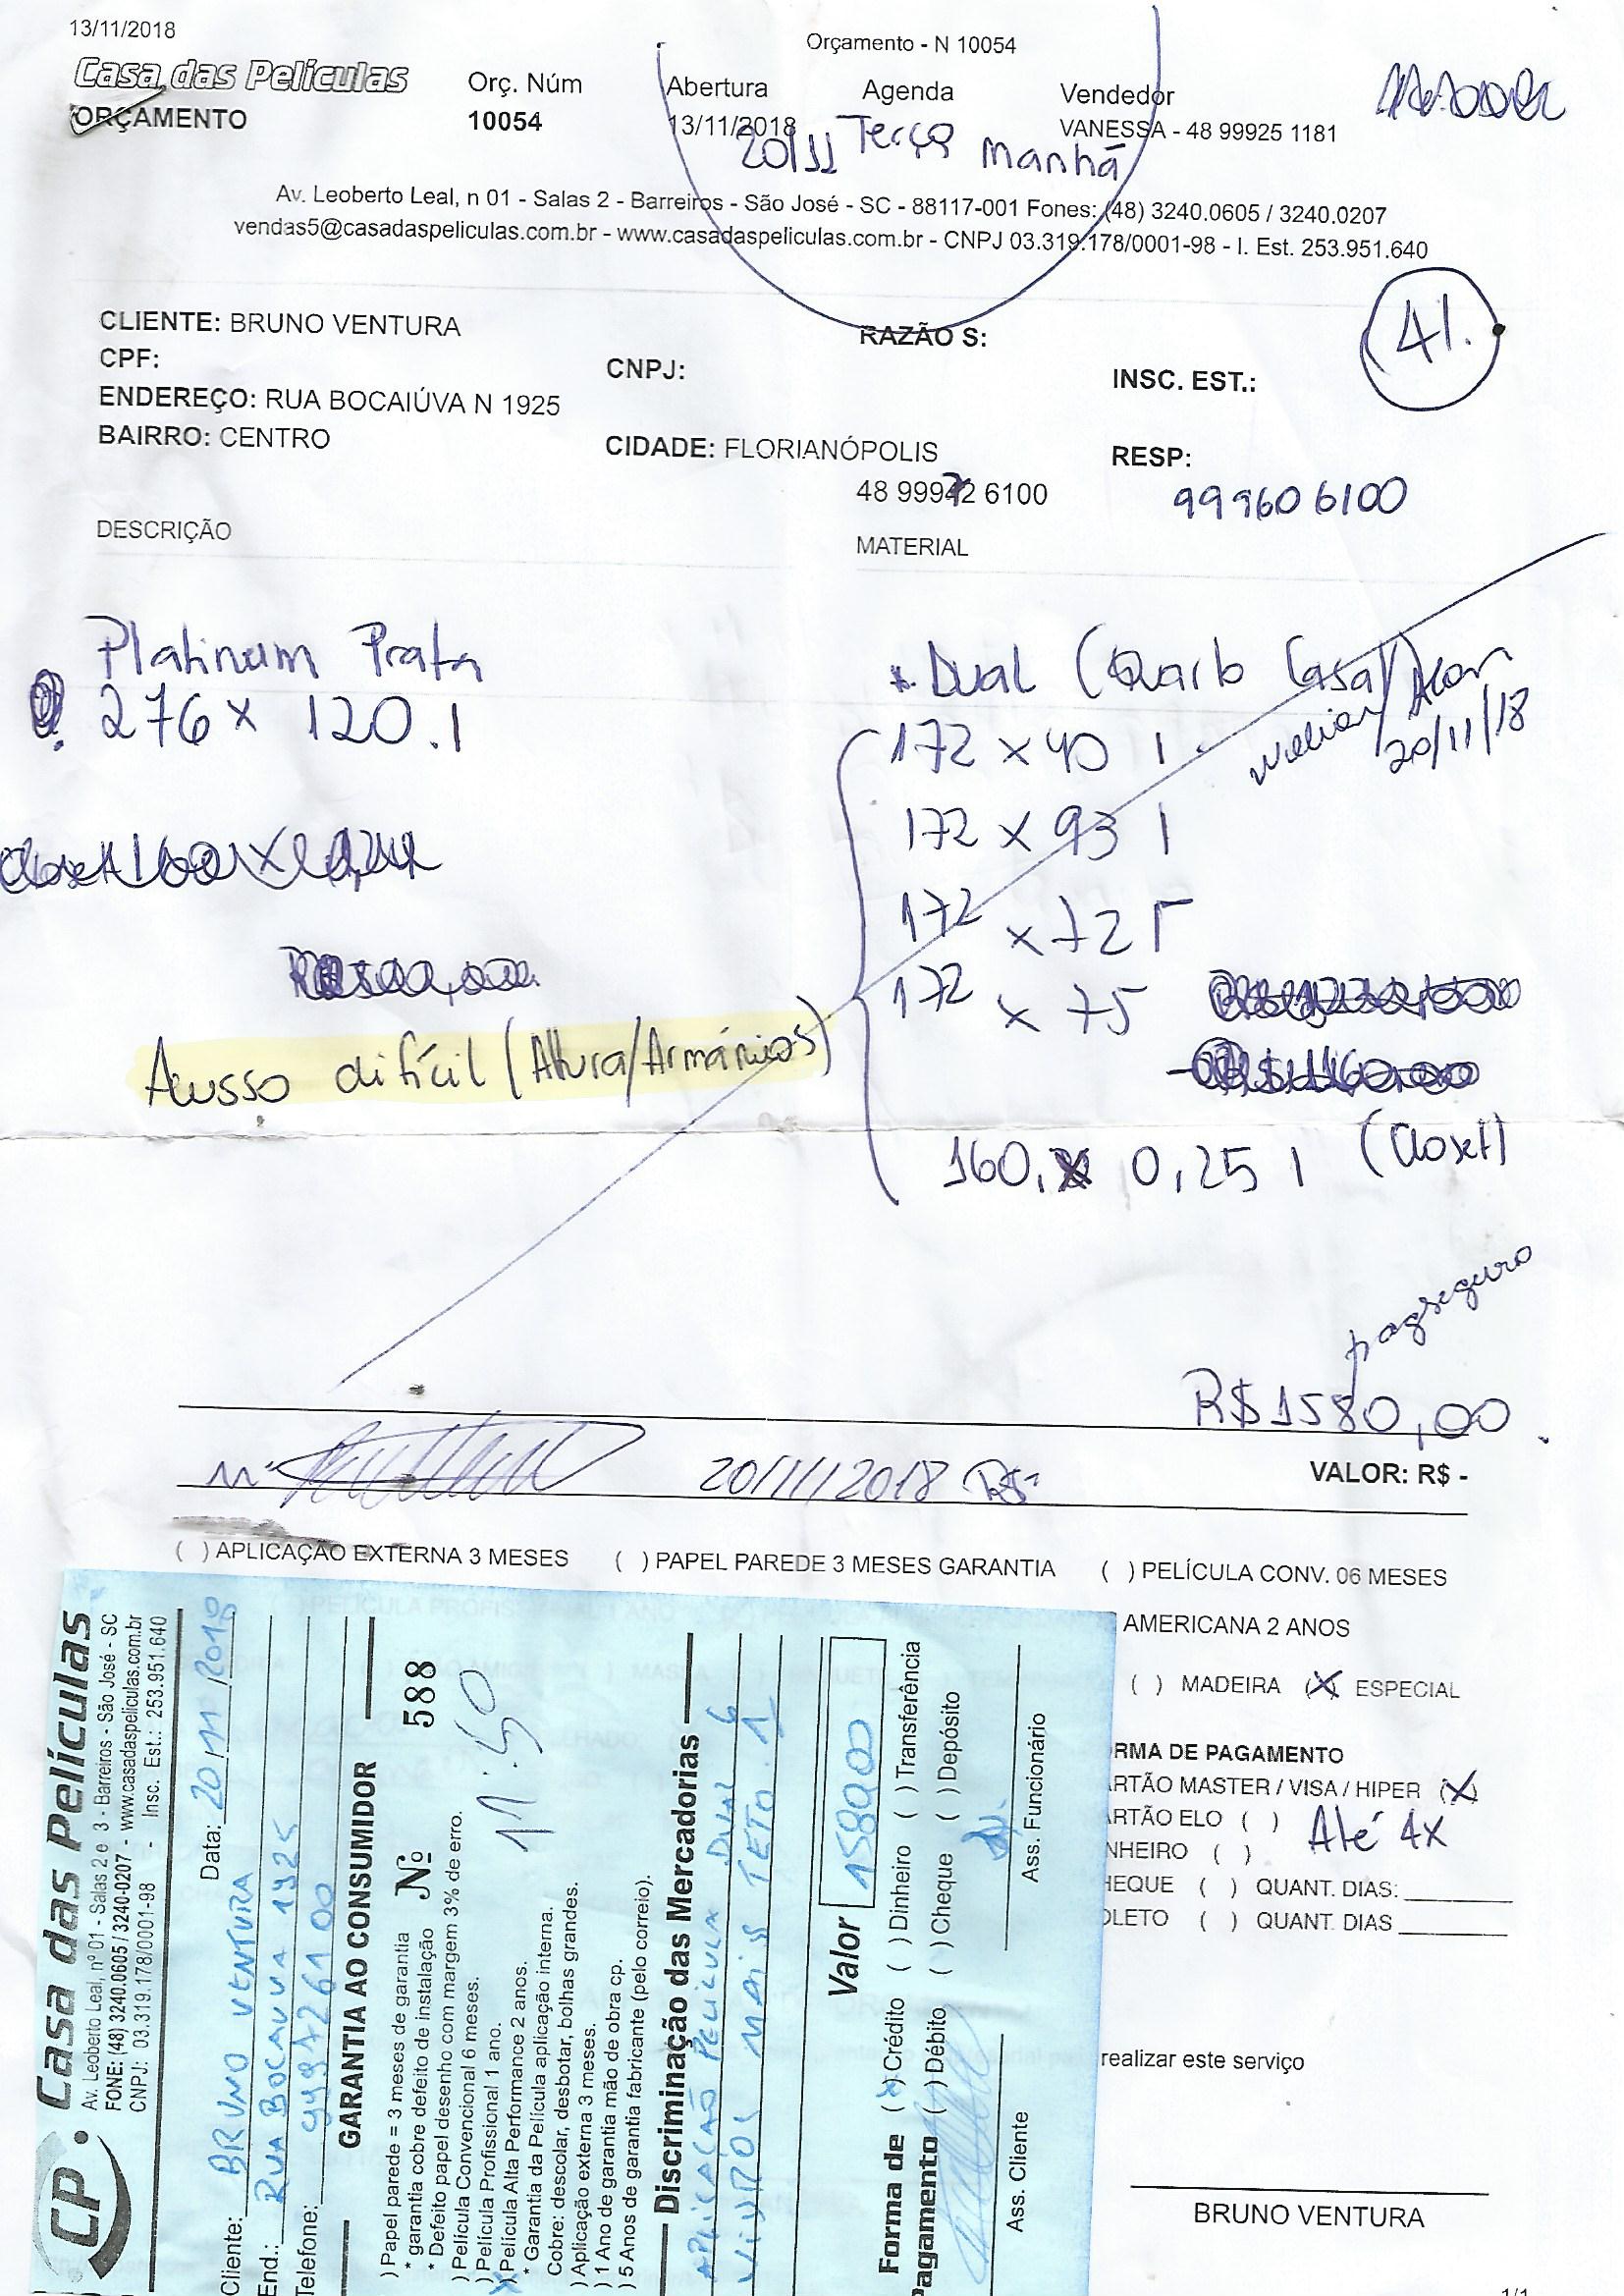 13/11/2018
Orçamento - N 10054
Casa das Películas
ORÇAMENTO
Orç. Núm
10054
Abertura
13/11/2018
Agenda
20/11 Terça Manhã
Vendedor
VANESSA - 48 99925 1181
Av. Leoberto Leal, n 01 - Salas 2 - Barreiros - São José - SC - 88117-001 Fones: (48) 3240.0605 / 3240.0207
vendas5@casadaspeliculas.com.br - www.casadaspeliculas.com.br - CNPJ 03.319.178/0001-98 - I. Est. 253.951.640
41.
CLIENTE: BRUNO VENTURA
RAZÃO S:
CPF:
CNPJ:
INSC. EST.:
ENDEREÇO: RUA BOCAIÚVA N 1925
BAIRRO: CENTRO
CIDADE: FLORIANÓPOLIS
RESP:
48 99972 6100
99960 6100
DESCRIÇÃO
MATERIAL
Platinum Prata
276 x 120.1
Dual (Quarto Casal)
20/11/18
172 x 40 1
172 x 93 1
172 x 72 1
172 x 75
Acesso difícil (Altura/Armários)
160 x 0,25 1 (Closet)
pagseguro
R$1580,00
20/11/2018
VALOR: R$ -
( ) APLICAÇÃO EXTERNA 3 MESES ( ) PAPEL PAREDE 3 MESES GARANTIA ( ) PELÍCULA CONV. 06 MESES
AMERICANA 2 ANOS
( ) MADEIRA (X) ESPECIAL
RMA DE PAGAMENTO
RTÃO MASTER / VISA / HIPER (X)
RTÃO ELO ( )
Até 4x
NHEIRO ( )
HEQUE ( ) QUANT. DIAS:
OLETO ( ) QUANT. DIAS
realizar este serviço
BRUNO VENTURA
1/1
CP. Casa das Películas
Av. Leoberto Leal, nº 01 - Salas 2 e 3 - Barreiros - São José - SC
FONE: (48) 3240.0605 / 3240-0207 - www.casadaspeliculas.com.br
CNPJ: 03.319.178/0001-98 - Insc. Est.: 253.951.640
Data: 20/11/2018
Cliente: BRUNO VENTURA
End.: RUA BOCAUVA 1925
Telefone: 999726100
GARANTIA AO CONSUMIDOR
Nº 588
11:50
) Papel parede = 3 meses de garantia
* garantia cobre defeito de instalação
* Defeito papel desenho com margem 3% de erro.
) Película Convencional 6 meses.
) Película Profissional 1 ano.
x Película Alta Performance 2 anos.
* Garantia da Película aplicação interna.
Cobre: descolar, desbotar, bolhas grandes.
) Aplicação externa 3 meses.
) 1 Ano de garantia mão de obra cp.
) 5 Anos de garantia fabricante (pelo correio).
Discriminação das Mercadorias
APLICAÇAO PELICULA DUAL 6
VIDROS MAIS TETO. 1
Valor 1580,00
Forma de Pagamento
(x) Crédito ( ) Dinheiro ( ) Transferência
( ) Débito ( ) Cheque ( ) Depósito
Ass. Cliente
Ass. Funcionário